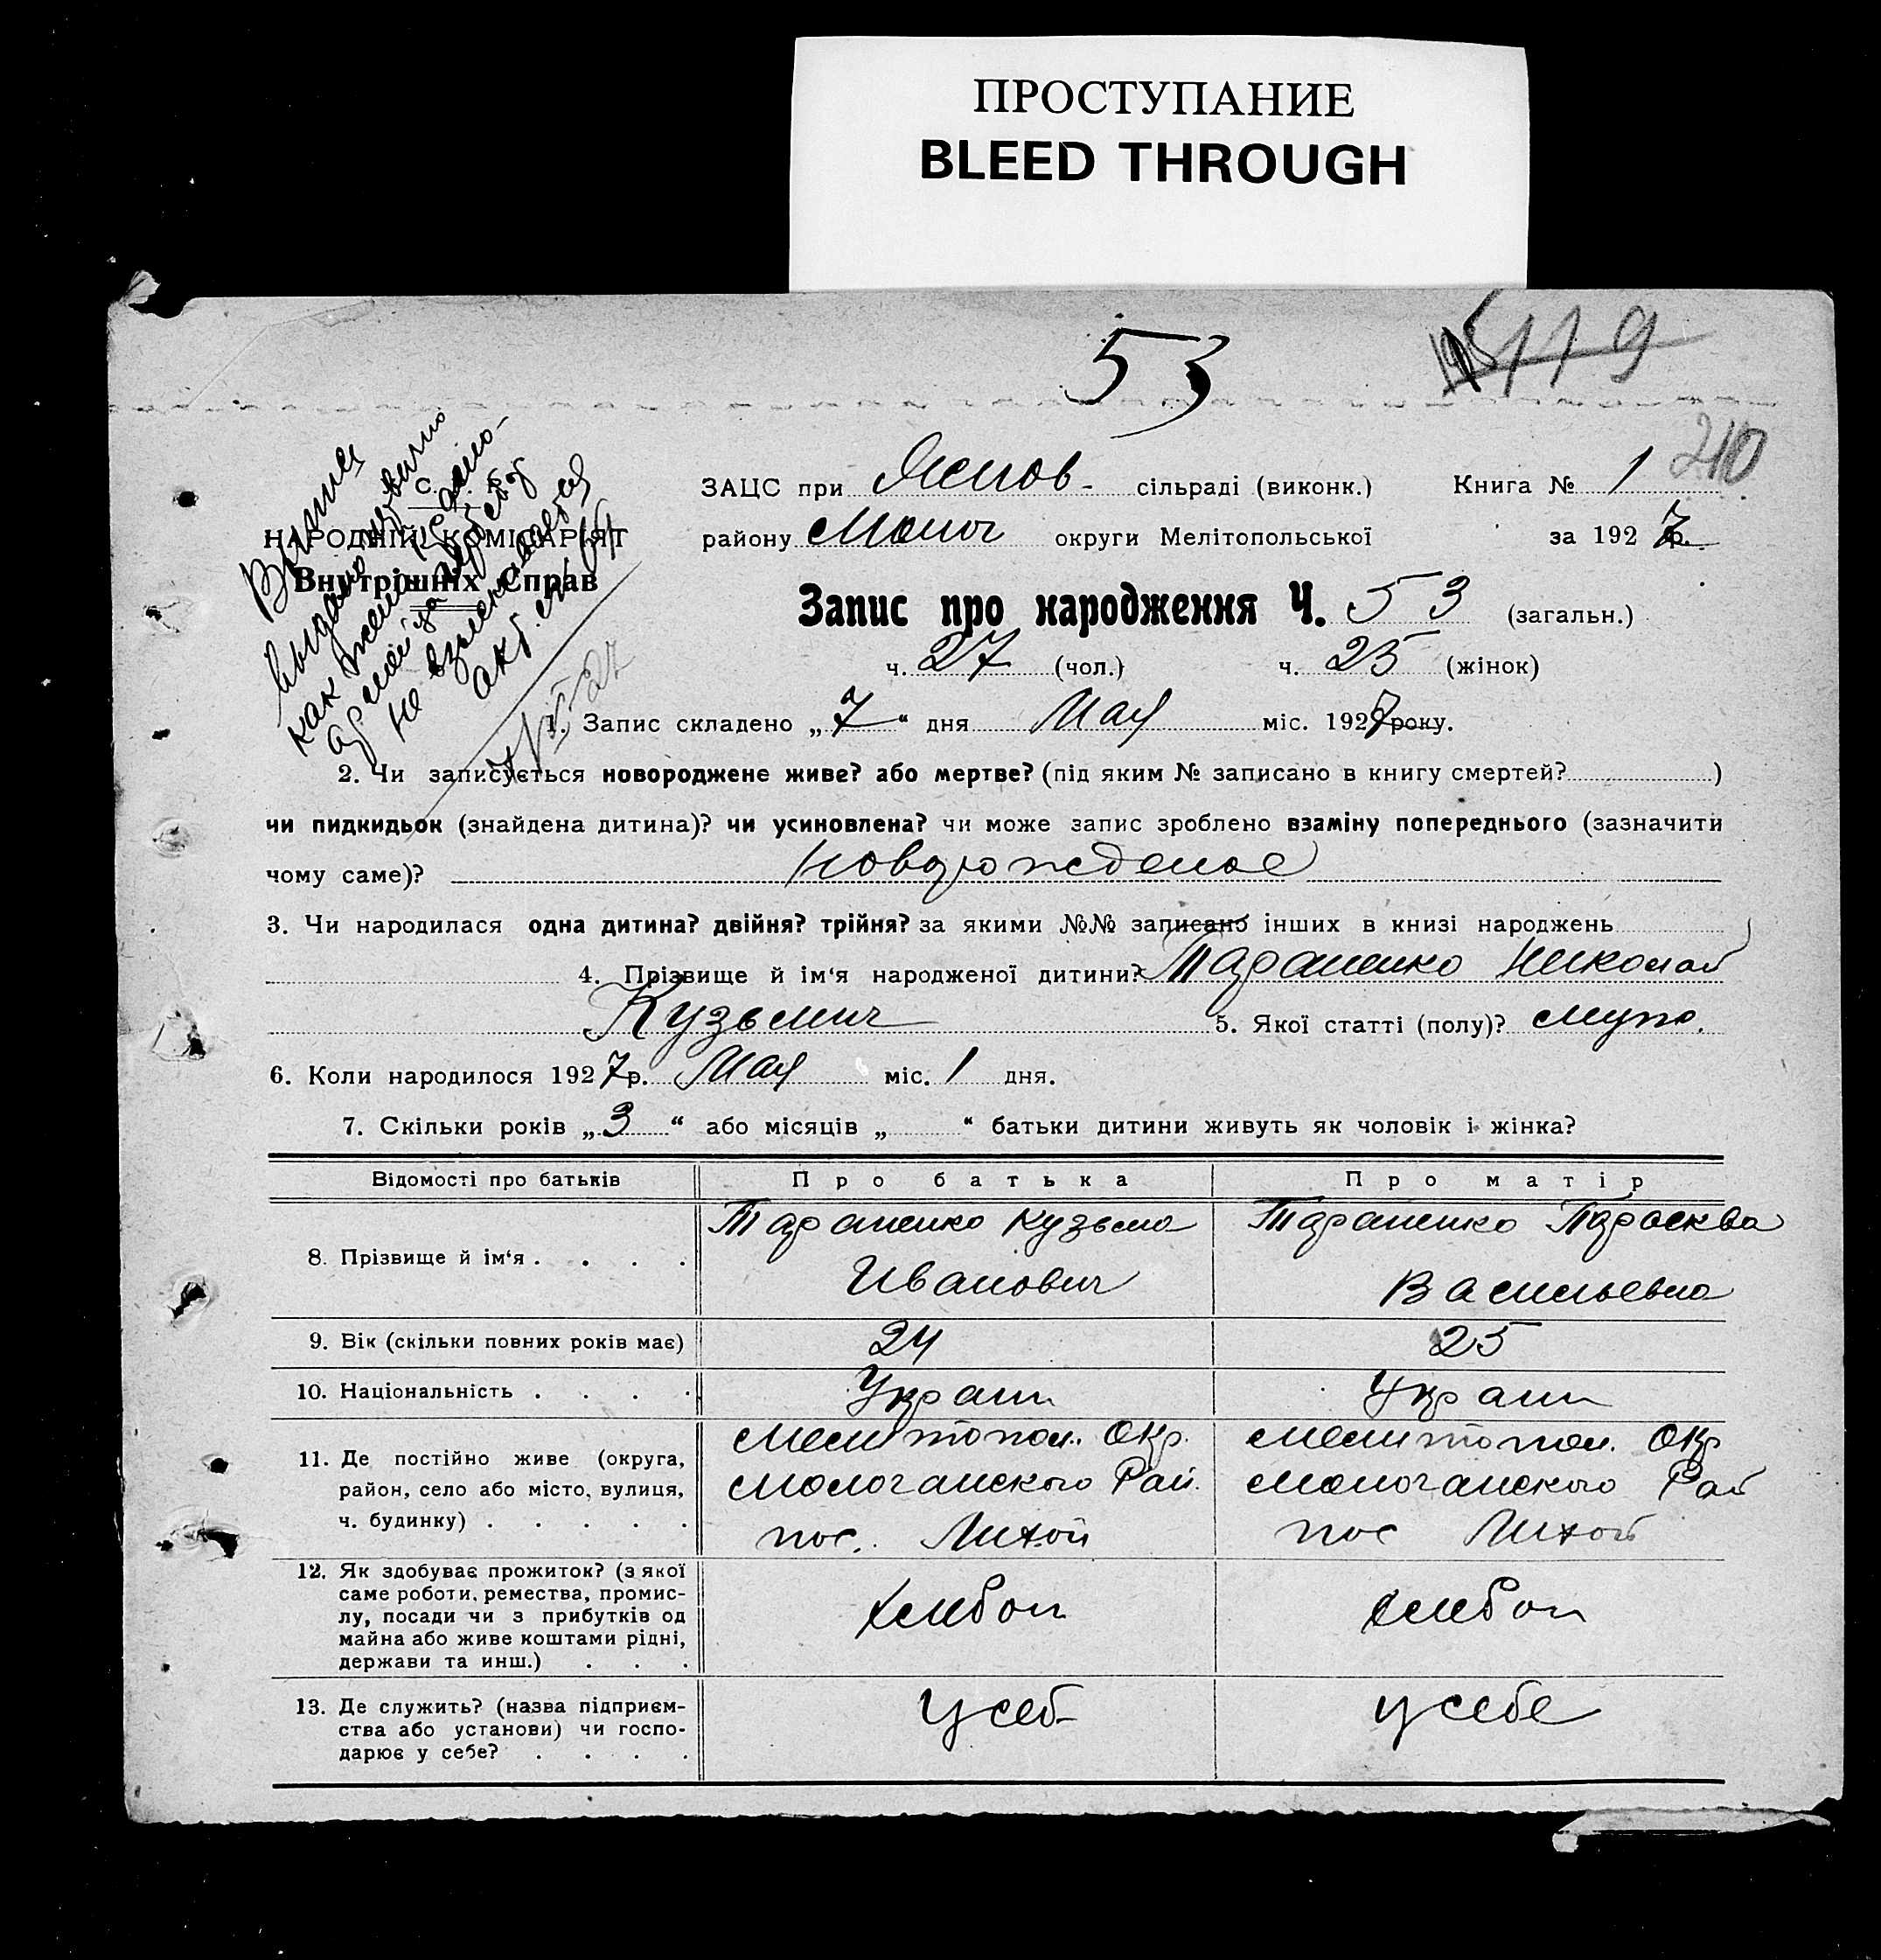 ПРОСТУПАНИЕ
BLEED THROUGH
53
119
210
Выпись
выдано
как жене
не взыскивается
НАРОДНІЙ КОМІСАРІЯТ
Внутрішніх Справ
ЗАЦС при Яснов- сільраді (виконк.) Книга № 1
району Молоч округи Мелітопольської за 1927 р.
Запис про народження Ч. 53 (загальн.)
ч. 27 (чол.) ч. 25 (жінок)
1. Запис складено „7“ дня Мая міс. 1927 року.
2. Чи записується новороджене живе? або мертве? (під яким № записано в книгу смертей? )
чи пидкидьок (знайдена дитина)? чи усиновлена? чи може запис зроблено взаміну попереднього (зазначити
чому саме)? новорожденое
3. Чи народилася одна дитина? двійня? трійня? за якими №№ записано інших в книзі народжень
4. Прізвище й ім‘я народженої дитини? Тараненко Николай
Кузьмич 5. Якої статті (полу)? муж.
6. Коли народилося 1927 р. Мая міс. 1 дня.
7. Скільки років „3“ або місяців „ “ батьки дитини живуть як чоловік і жінка?
Відомості про батьків Про батька Про матір
8. Прізвище й ім‘я . . . . Тараненко Кузьма Иванович Тараненко Параскева Васильевна
9. Вік (скільки повних років має) 24 25
10. Національність . . . . Украин Украин
11. Де постійно живе (округа,
район, село або місто, вулиця,
ч. будинку) . . . . .
Мелитопол. Окр.
Молочанского Рай.
пос. Лихой
Мелитопол. Окр
Молочанского Рай
пос Лихой
12. Як здобуває прожиток? (з якої
саме роботи, ремества, промис-
лу, посади чи з прибутків од
майна або живе коштами рідні,
держави та инш.) . . .
хлебоп хлебоп
13. Де служить? (назва підприєм-
ства або установи) чи госпо-
дарює у себе? . . . .
у себ у себе